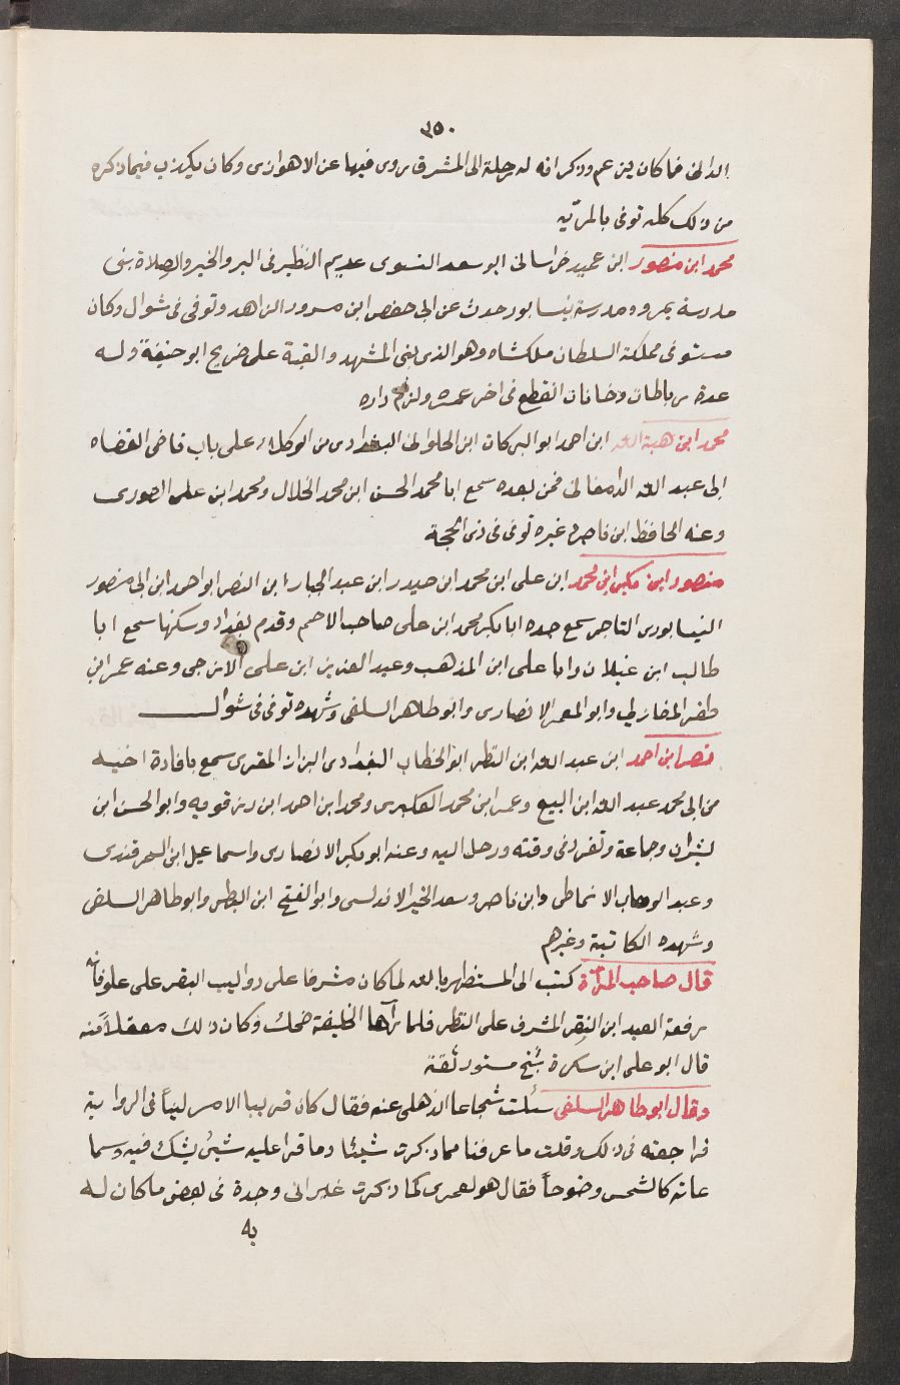 ٣٥٠
الدانى فما كان يزعم وذكر انه له رحلة الى المشرق روى فيها عن الاهوازى وكان يكذب فيما ذكره
من ذلك كله توفى بالمريه
محمد ابن منصور ابن عميد خراسانى ابو سعد النسوى عديم النظير فى البر والخير والصلاة بنى
مدرسة بمرو ومدرسة بنيسابور حدث عن ابى حفص ابن مسرور الزاهد وتوفى فى شوال وكان
مستوفى مملكة السلطان ملكشاه وهو الذى بنى المشهد والقبة على ضريح ابو حنيفة وله
عدة رباطات وخانات انقطع فى اخر عمره ولزم داره
محمد ابن هبة الله ابن احمد ابو البركات ابن الحلوانى البغدادى من الوكلاء على باب قاضى القضاه
ابى عبد الله الدامغانى فمن بعده سمع ابا محمد الحسن ابن محمد الخلال ومحمد ابن على الصورى
وعنه الحافظ ابن ناصر وغيره توفى فى ذى الحجة
منصور ابن بكر ابن محمد ابن على ابن محمد ابن حيدر ابن عبد الجبار ابن النضر ابو احمد ابن ابى منصور
النيسابورى التاجر سمع جده ابا بكر محمد ابن على صاحب الاصم وقدم بغداد وسكنها سمع ابا
طالب ابن غيلان وابا على ابن المذهب وعبد العزيز ابن على الازجى وعنه عمر ابن
ظفر المغازلى وابو المعمر الانصارى وابو طاهر السلفى وشهده توفى فى شوال
نصر ابن احمد ابن عبد الله ابن البطر ابو الخطاب البغدادى البزاز المقرى سمع بافادة اخيه
من ابى محمد عبد الله ابن البيع وعمر ابن محمد العكبرى ومحمد ابن احمد ابن رزقويه وابو الحسن ابن
بشران وجماعة وتفرد فى وقته ورحل اليه وعنه ابو بكر الانصارى واسماعيل ابن السمرقندى
وعبد الوهاب الانماطى وابن ناصر وسعد الخير الاندلسى وابو الفتح ابن البطى وابو طاهر السلفى
وشهده الكاتبة وغيرهم
قال صاحب المرآة كتب الى المستظهر بالله لما كان مشرفا على دواليب البقر على علوفاته
رقعة العبد ابن البقر المشرف على البطر فلما رآها الخليفة ضحك وكان ذلك مغفلا منه
قال ابو على ابن سكرة شيخ مستور ثقة
وقال ابو طاهر السلفى سئلت شجاعا الذهلى عنه فقال كان قريب الامر لينا فى الرواية
فراجعته فى ذلك وقلت ما عرفنا مما ذكرت شيئا وما قرا عليه شئ يشك فيه وسما
عاته كالشمس وضوحا فقال هو لعمرى كما ذكرت غير انى وجدة فى بعض ما كان له
به